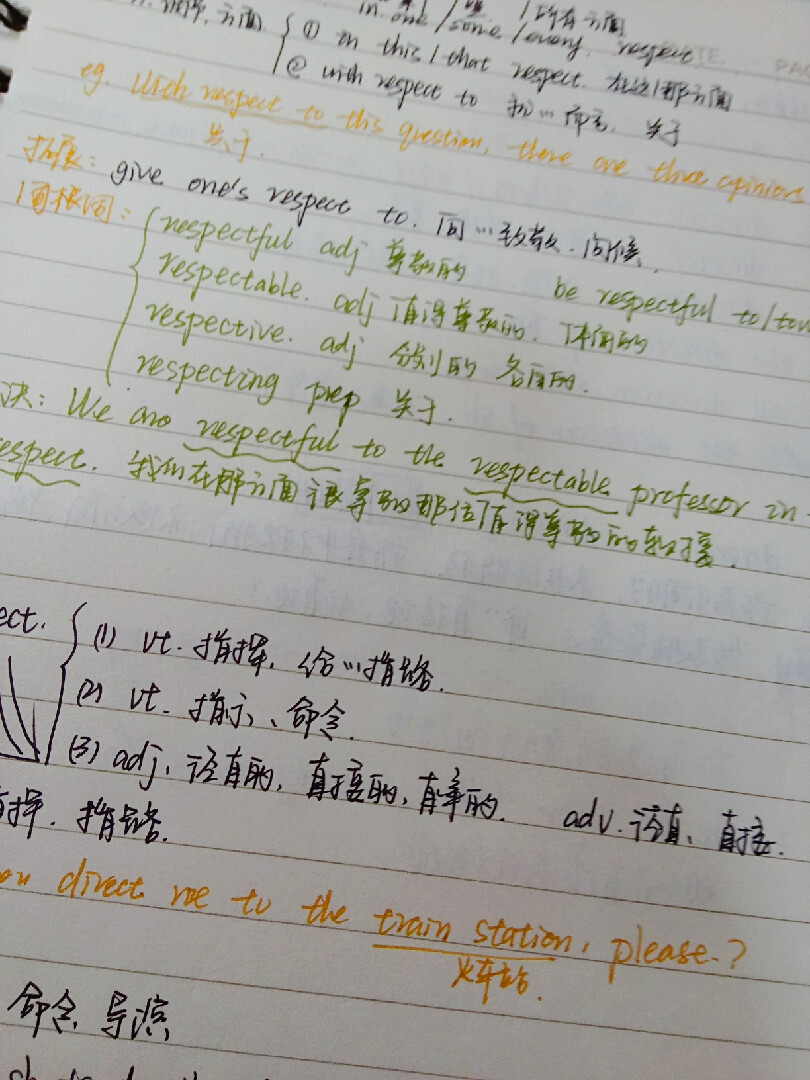 方面 { in one / some / every respect 所有方面
① in this / that respect. 在这/那方面
② with respect to 就…而言, 关于
eg. With respect to this question, there are three opinions
关于.
拓展: give one's respect to. 向…致敬. 问候.
同根词: { respectful adj 尊敬的 be respectful to/tow
respectable. adj 值得尊敬的. 体面的
respective. adj 分别的 各自的.
respecting prep 关于.
决: We are respectful to the respectable professor in
espect. 我们在那方面很尊敬那位值得尊敬的教授.
ect. { (1) vt. 指挥, 给…指路.
(2) vt. 指示、命令.
(3) adj. 径直的, 直接的, 直率的. adv. 径直、直接.
指挥. 指路.
ou direct me to the train station, please.?
火车站.
命令, 导演